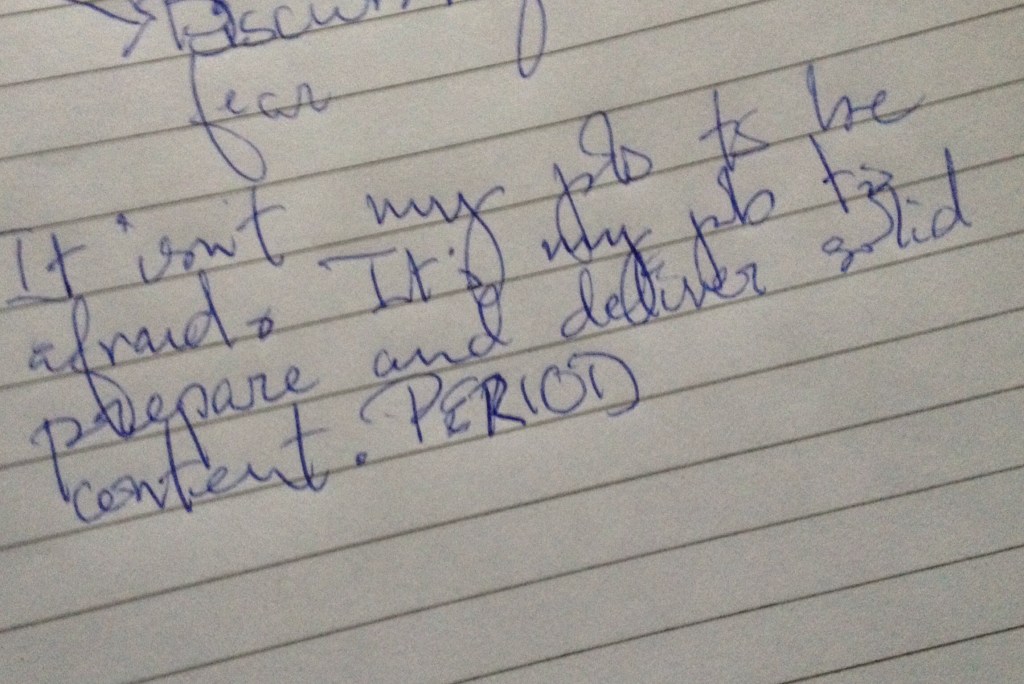 fear
It isn't my job to be
afraid. It's my job to
prepare and deliver solid
content. PERIOD